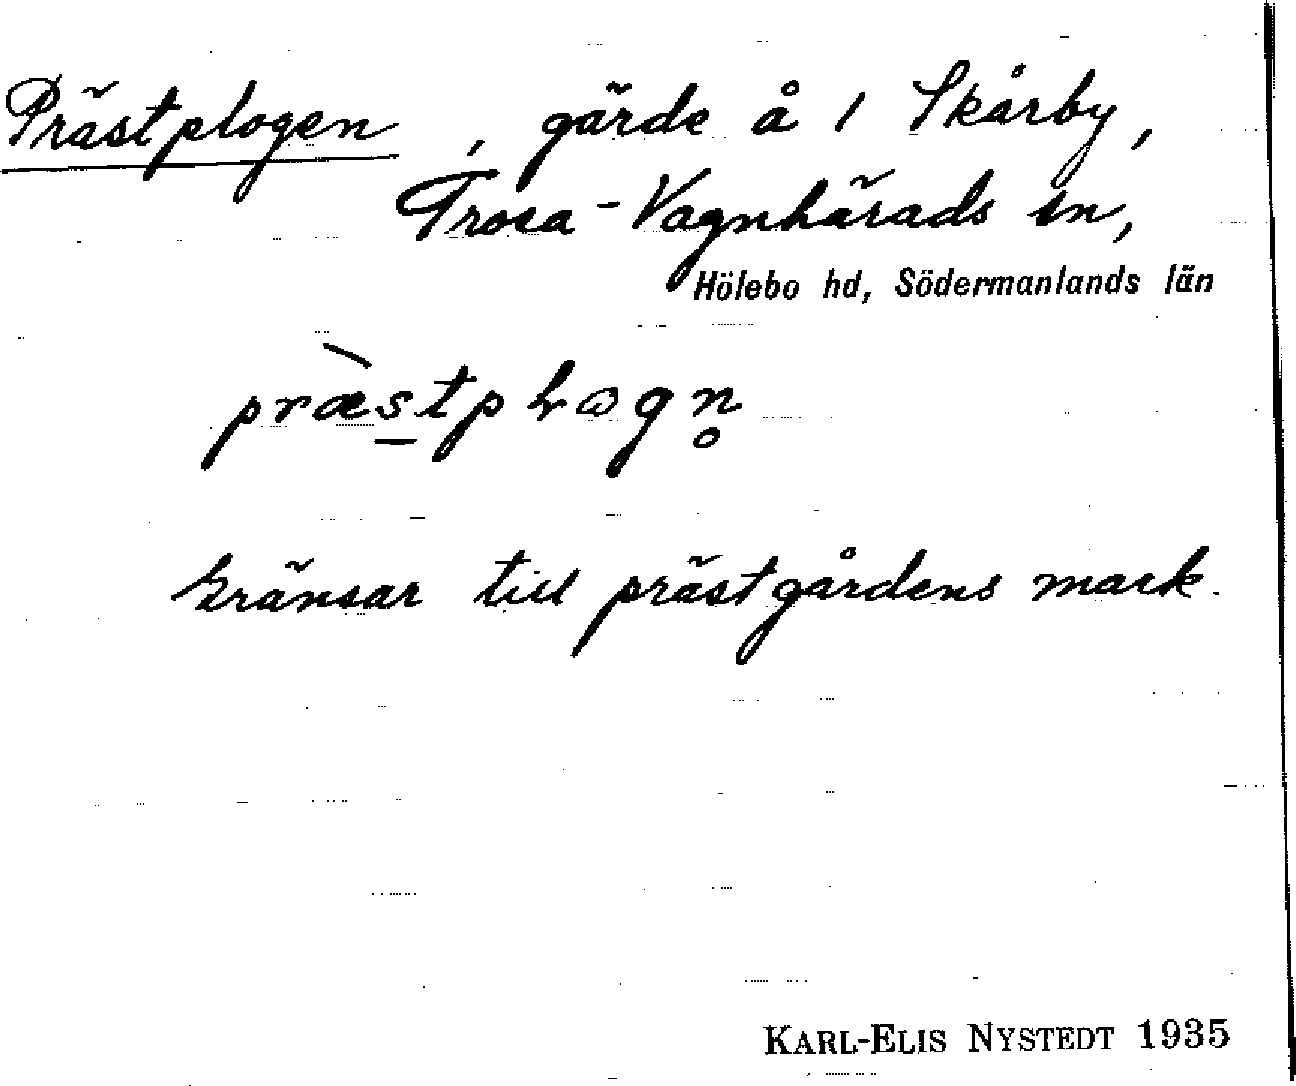 Prästplogen, gärde å 1 Skårby,
Trosa-Vagnhärads sn,
Hölebo hd, Södermanlands län
Gränsar till prästgårdens mark.
KARL-ELIS NYSTEDT 1935